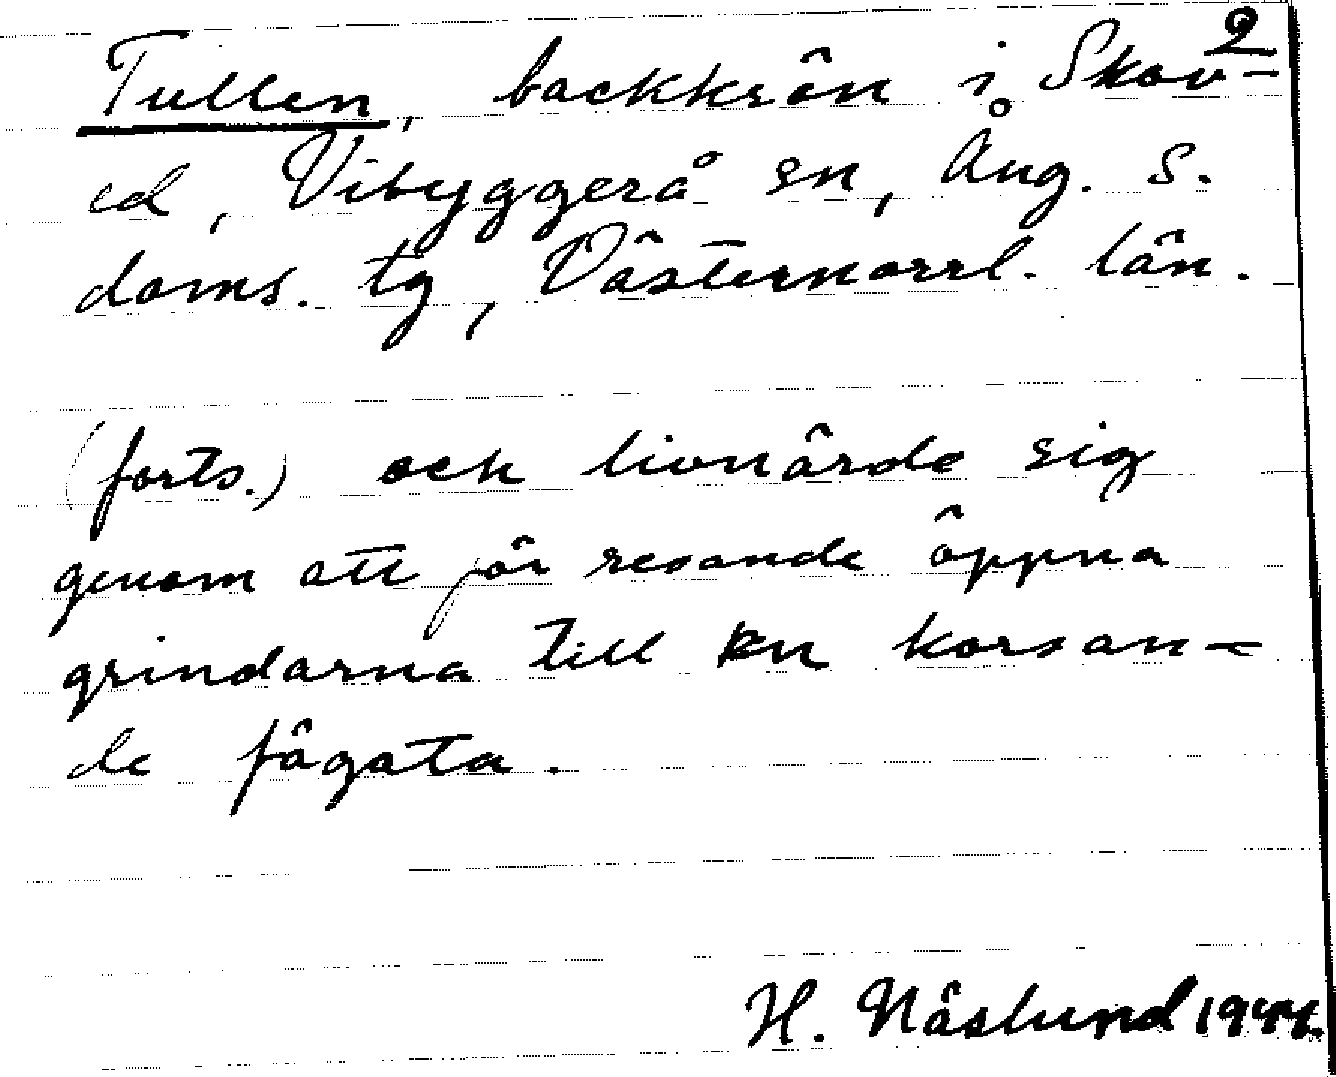 2
Tullen, backkrön i Skov-
ed, Vibyggerå sn, Ång. s.
doms. tg, Västernorrl. län.
(forts.) och livnärde sig
genom att för resande öppna
grindarna till en korsan-
de fägata.
H. Näslund 1944.